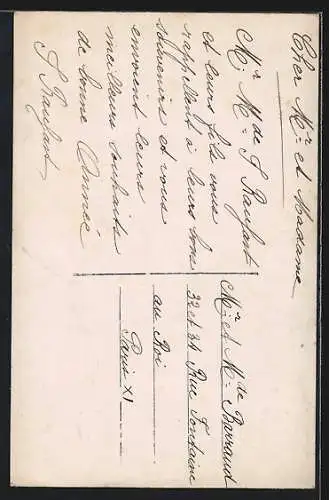 Cher Mr et Madame
Mr Mde S Raufast
et leurs fils vous
rappellent à leurs bon
souvenirs et vous
envoient leurs
meilleurs souhaits
de bonne Année
S Raufast
Mr et Mde Barraud
32 et 34 Rue Fontaine
au Roi
Paris XI